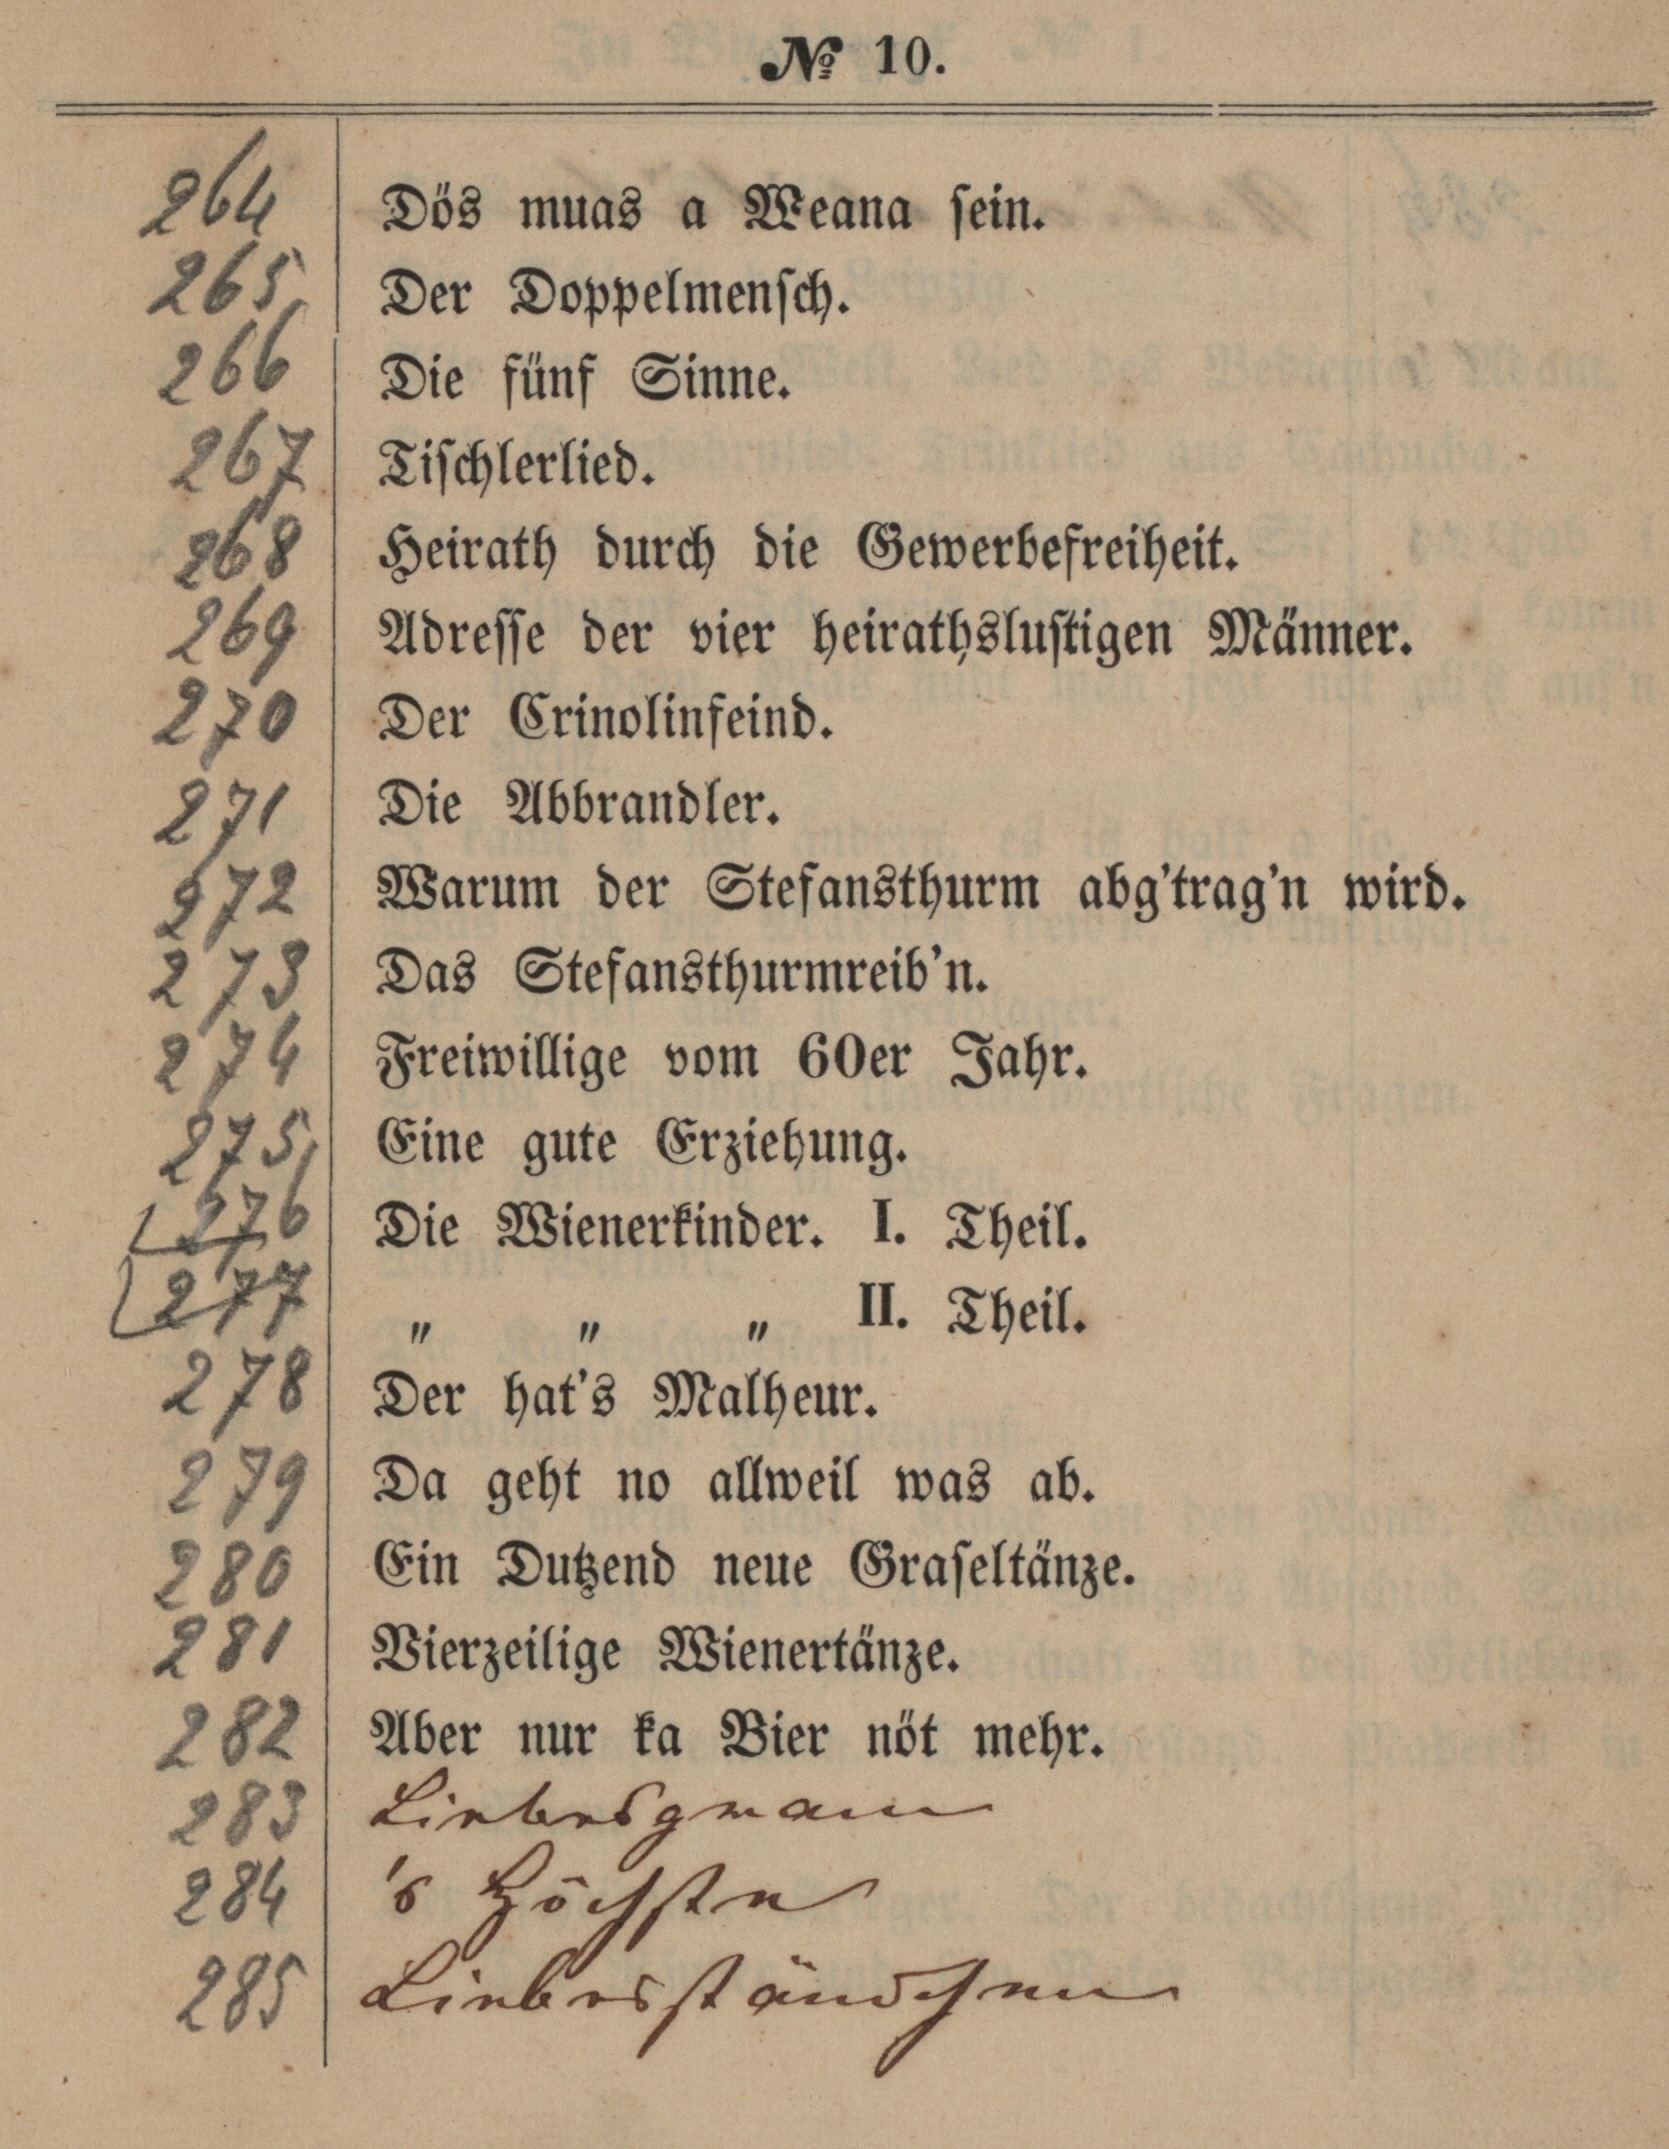 № 10.
264 Dös muas a Weana sein.
265 Der Doppelmensch.
266 Die fünf Sinne.
267 Tischlerlied.
268 Heirath durch die Gewerbefreiheit.
269 Adresse der vier heirathslustigen Männer.
270 Der Crinolinfeind.
271 Die Abbrandler.
272 Warum der Stefansthurm abg'trag'n wird.
273 Das Stefansthurmreib'n.
274 Freiwillige vom 60er Jahr.
275 Eine gute Erziehung.
276 Die Wienerkinder. I. Theil.
277 " " " II. Theil.
278 Der hat's Malheur.
279 Da geht no allweil was ab.
280 Ein Dutzend neue Graseltänze.
281 Vierzeilige Wienertänze.
282 Aber nur ka Bier nöt mehr.
283
284 's Höchste
285 Liebesständchen